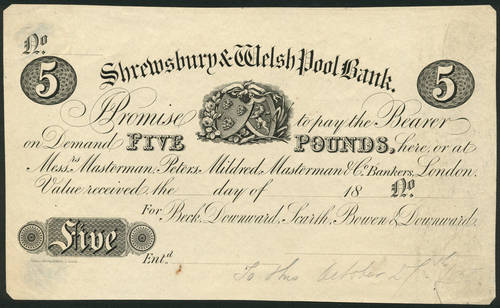 No
5 Shrewsbury & Welsh Pool Bank. 5
I Promise to pay the Bearer
on Demand FIVE POUNDS, here, or at
Messrs Masterman, Peters, Mildred, Masterman & Co. Bankers, London.
Value received, the day of 18 No
For Beck, Downward, Scarth, Bowen & Downward.
Five
Entd
To this October 2